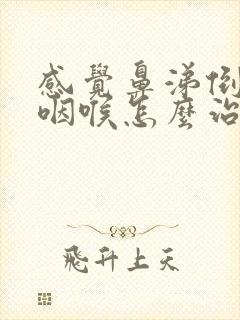 感覺鼻涕倒
咽喉怎麼治
飛升上天